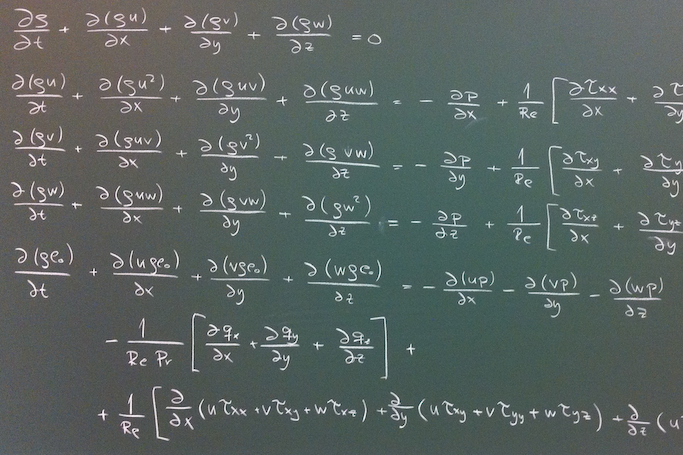 ∂ρ/∂t + ∂(ρu)/∂x + ∂(ρv)/∂y + ∂(ρw)/∂z = 0
∂(ρu)/∂t + ∂(ρu²)/∂x + ∂(ρuv)/∂y + ∂(ρuw)/∂z = - ∂p/∂x + 1/Re [ ∂τxx/∂x + ∂τ/∂y
∂(ρv)/∂t + ∂(ρuv)/∂x + ∂(ρv²)/∂y + ∂(ρvw)/∂z = - ∂p/∂y + 1/Re [ ∂τxy/∂x + ∂τy/∂y
∂(ρw)/∂t + ∂(ρuw)/∂x + ∂(ρvw)/∂y + ∂(ρw²)/∂z = - ∂p/∂z + 1/Re [ ∂τxz/∂x + ∂τyz/∂y
∂(ρe₀)/∂t + ∂(uρe₀)/∂x + ∂(vρe₀)/∂y + ∂(wρe₀)/∂z = - ∂(up)/∂x - ∂(vp)/∂y - ∂(wp)/∂z
- 1/Re Pr [ ∂qx/∂x + ∂qy/∂y + ∂qz/∂z ] +
+ 1/Re [ ∂/∂x (uτxx + vτxy + wτxz) + ∂/∂y (uτxy + vτyy + wτyz) + ∂/∂z (u